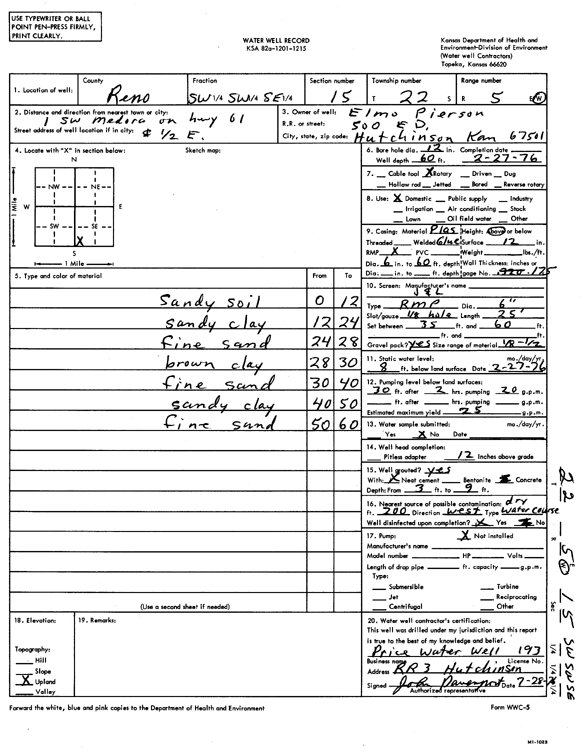 USE TYPEWRITER OR BALL
POINT PEN-PRESS FIRMLY,
PRINT CLEARLY.
WATER WELL RECORD
KSA 82a-1201-1215
Kansas Department of Health and
Environment-Division of Environment
(Water well Contractors)
Topeka, Kansas 66620
1. Location of well: County Reno Fraction SW 1/4 SW 1/4 SE 1/4 Section number 15 Township number T 22 S Range number R 5 E/W
2. Distance and direction from nearest town or city: 1 SW Medora on hwy 61
Street address of well location if in city: & 1/2 E.
3. Owner of well: Elmo Pierson
R.R. or street: 500 E D,
City, state, zip code: Hutchinson Kan 67501
4. Locate with "X" in section below:
Sketch map:
N
NW NE
W E
SW SE
X
S
1 Mile
1 Mile
6. Bore hole dia. 12 in. Completion date
Well depth 60 ft. 2-27-76
7. Cable tool X Rotary Driven Dug
Hollow rod Jetted Bored Reverse rotary
8. Use: X Domestic Public supply Industry
Irrigation Air conditioning Stock
Lawn Oil field water Other
9. Casing: Material Plas Height: Above or below
Threaded Welded Glue Surface 12 in.
RMP X PVC Weight lbs./ft.
Dia. 6 in. to 60 ft. depth Wall Thickness: inches or
Dia. in. to ft. depth gage No. .175
5. Type and color of material From To
Sandy soil 0 12
sandy clay 12 24
fine sand 24 28
brown clay 28 30
fine sand 30 40
sandy clay 40 50
fine sand 50 60
(Use a second sheet if needed)
10. Screen: Manufacturer's name
J & L
Type RMP Dia. 6"
Slot/gauze 1/8 hole Length 25'
Set between 35 ft. and 60 ft.
ft. and ft.
Gravel pack? Yes Size range of material 1/8-1/2
11. Static water level: mo./day/yr.
8 ft. below land surface Date 2-27-76
12. Pumping level below land surfaces:
30 ft. after 2 hrs. pumping 20 g.p.m.
ft. after hrs. pumping g.p.m.
Estimated maximum yield 25 g.p.m.
13. Water sample submitted: mo./day/yr.
Yes X No Date
14. Well head completion:
Pitless adapter 12 Inches above grade
15. Well grouted? yes
With: X Neat cement Bentonite Concrete
Depth: From 3 ft. to 9 ft.
16. Nearest source of possible contamination: dry
ft. 200 Direction West Type Water Course
Well disinfected upon completion? X Yes No
17. Pump: X Not installed
Manufacturer's name
Model number HP Volts
Length of drop pipe ft. capacity g.p.m.
Type:
Submersible Turbine
Jet Reciprocating
Centrifugal Other
18. Elevation:
Topography:
Hill
Slope
X Upland
Valley
19. Remarks:
20. Water well contractor's certification:
This well was drilled under my jurisdiction and this report
is true to the best of my knowledge and belief.
Price Water Well 193
Business name License No.
Address RR 3 Hutchinson
Signed John Davenport Date 7-28-76
Authorized representative
Forward the white, blue and pink copies to the Department of Health and Environment
Form WWC-5
T 22 R 5 W Sec 15 SW SW SE 1/4 1/4 1/4